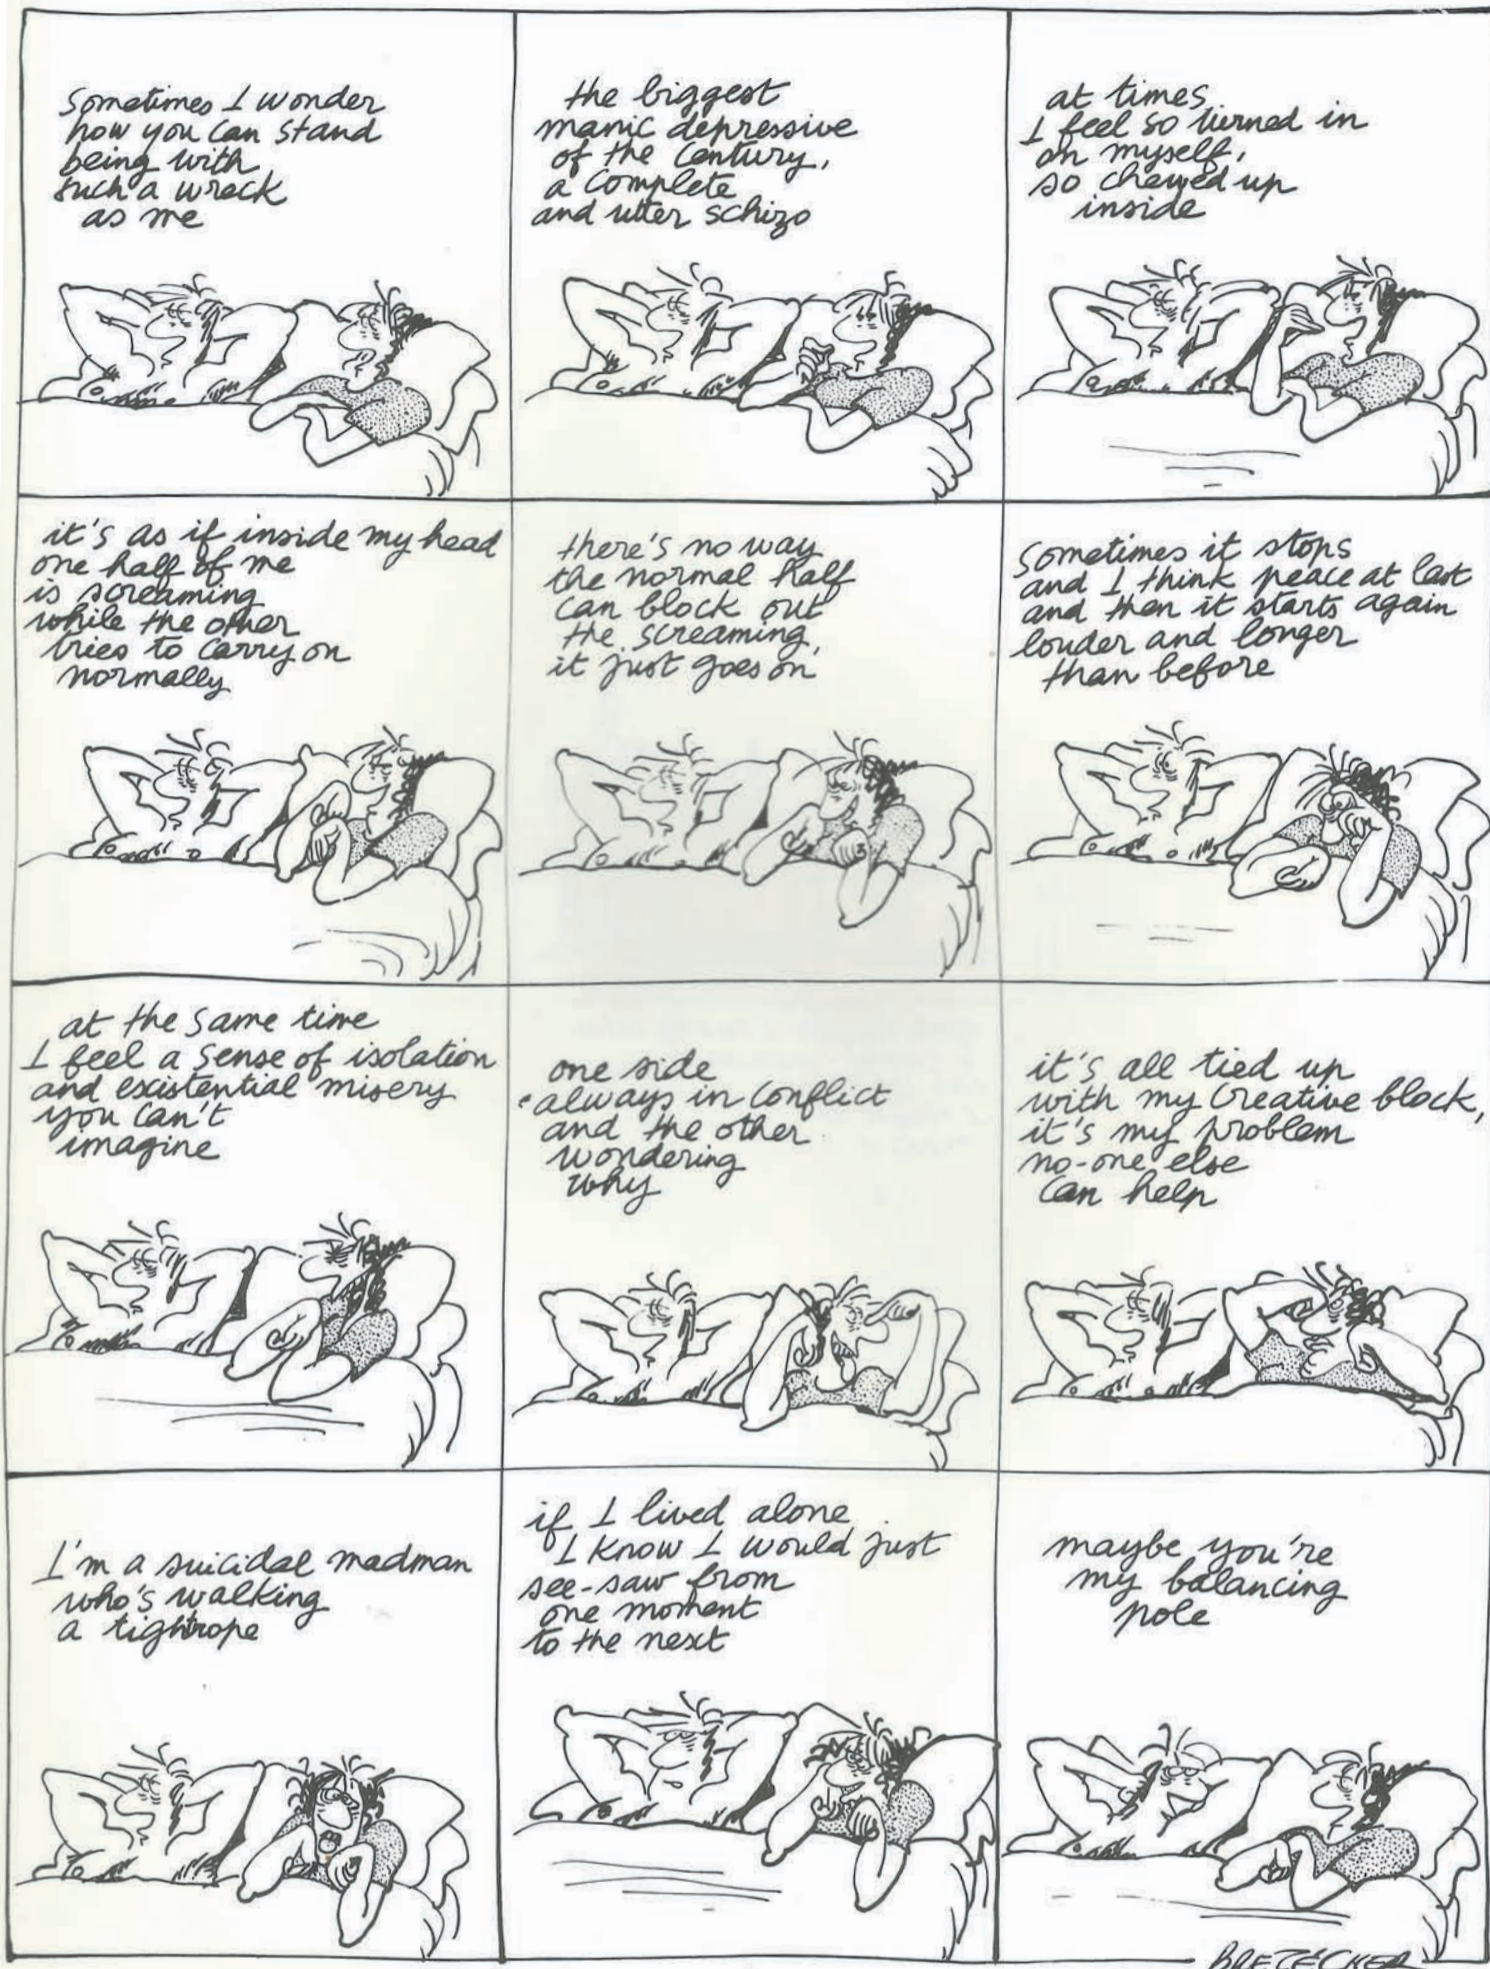 Sometimes I wonder
how you can stand
being with
such a wreck
as me
the biggest
manic depressive
of the century,
a complete
and utter schizo
at times
I feel so turned in
on myself,
so chewed up
inside
it's as if inside my head
one half of me
is screaming
while the other
tries to carry on
normally
there's no way
the normal half
can block out
the screaming,
it just goes on
Sometimes it stops
and I think peace at last
and then it starts again
louder and longer
than before
at the same time
I feel a sense of isolation
and existential misery
you can't
imagine
one side
always in conflict
and the other
wondering
why
it's all tied up
with my creative block,
it's my problem
no-one else
can help
I'm a suicidal madman
who's walking
a tightrope
if I lived alone
I know I would just
see-saw from
one moment
to the next
maybe you're
my balancing
pole
BRETÉCHER